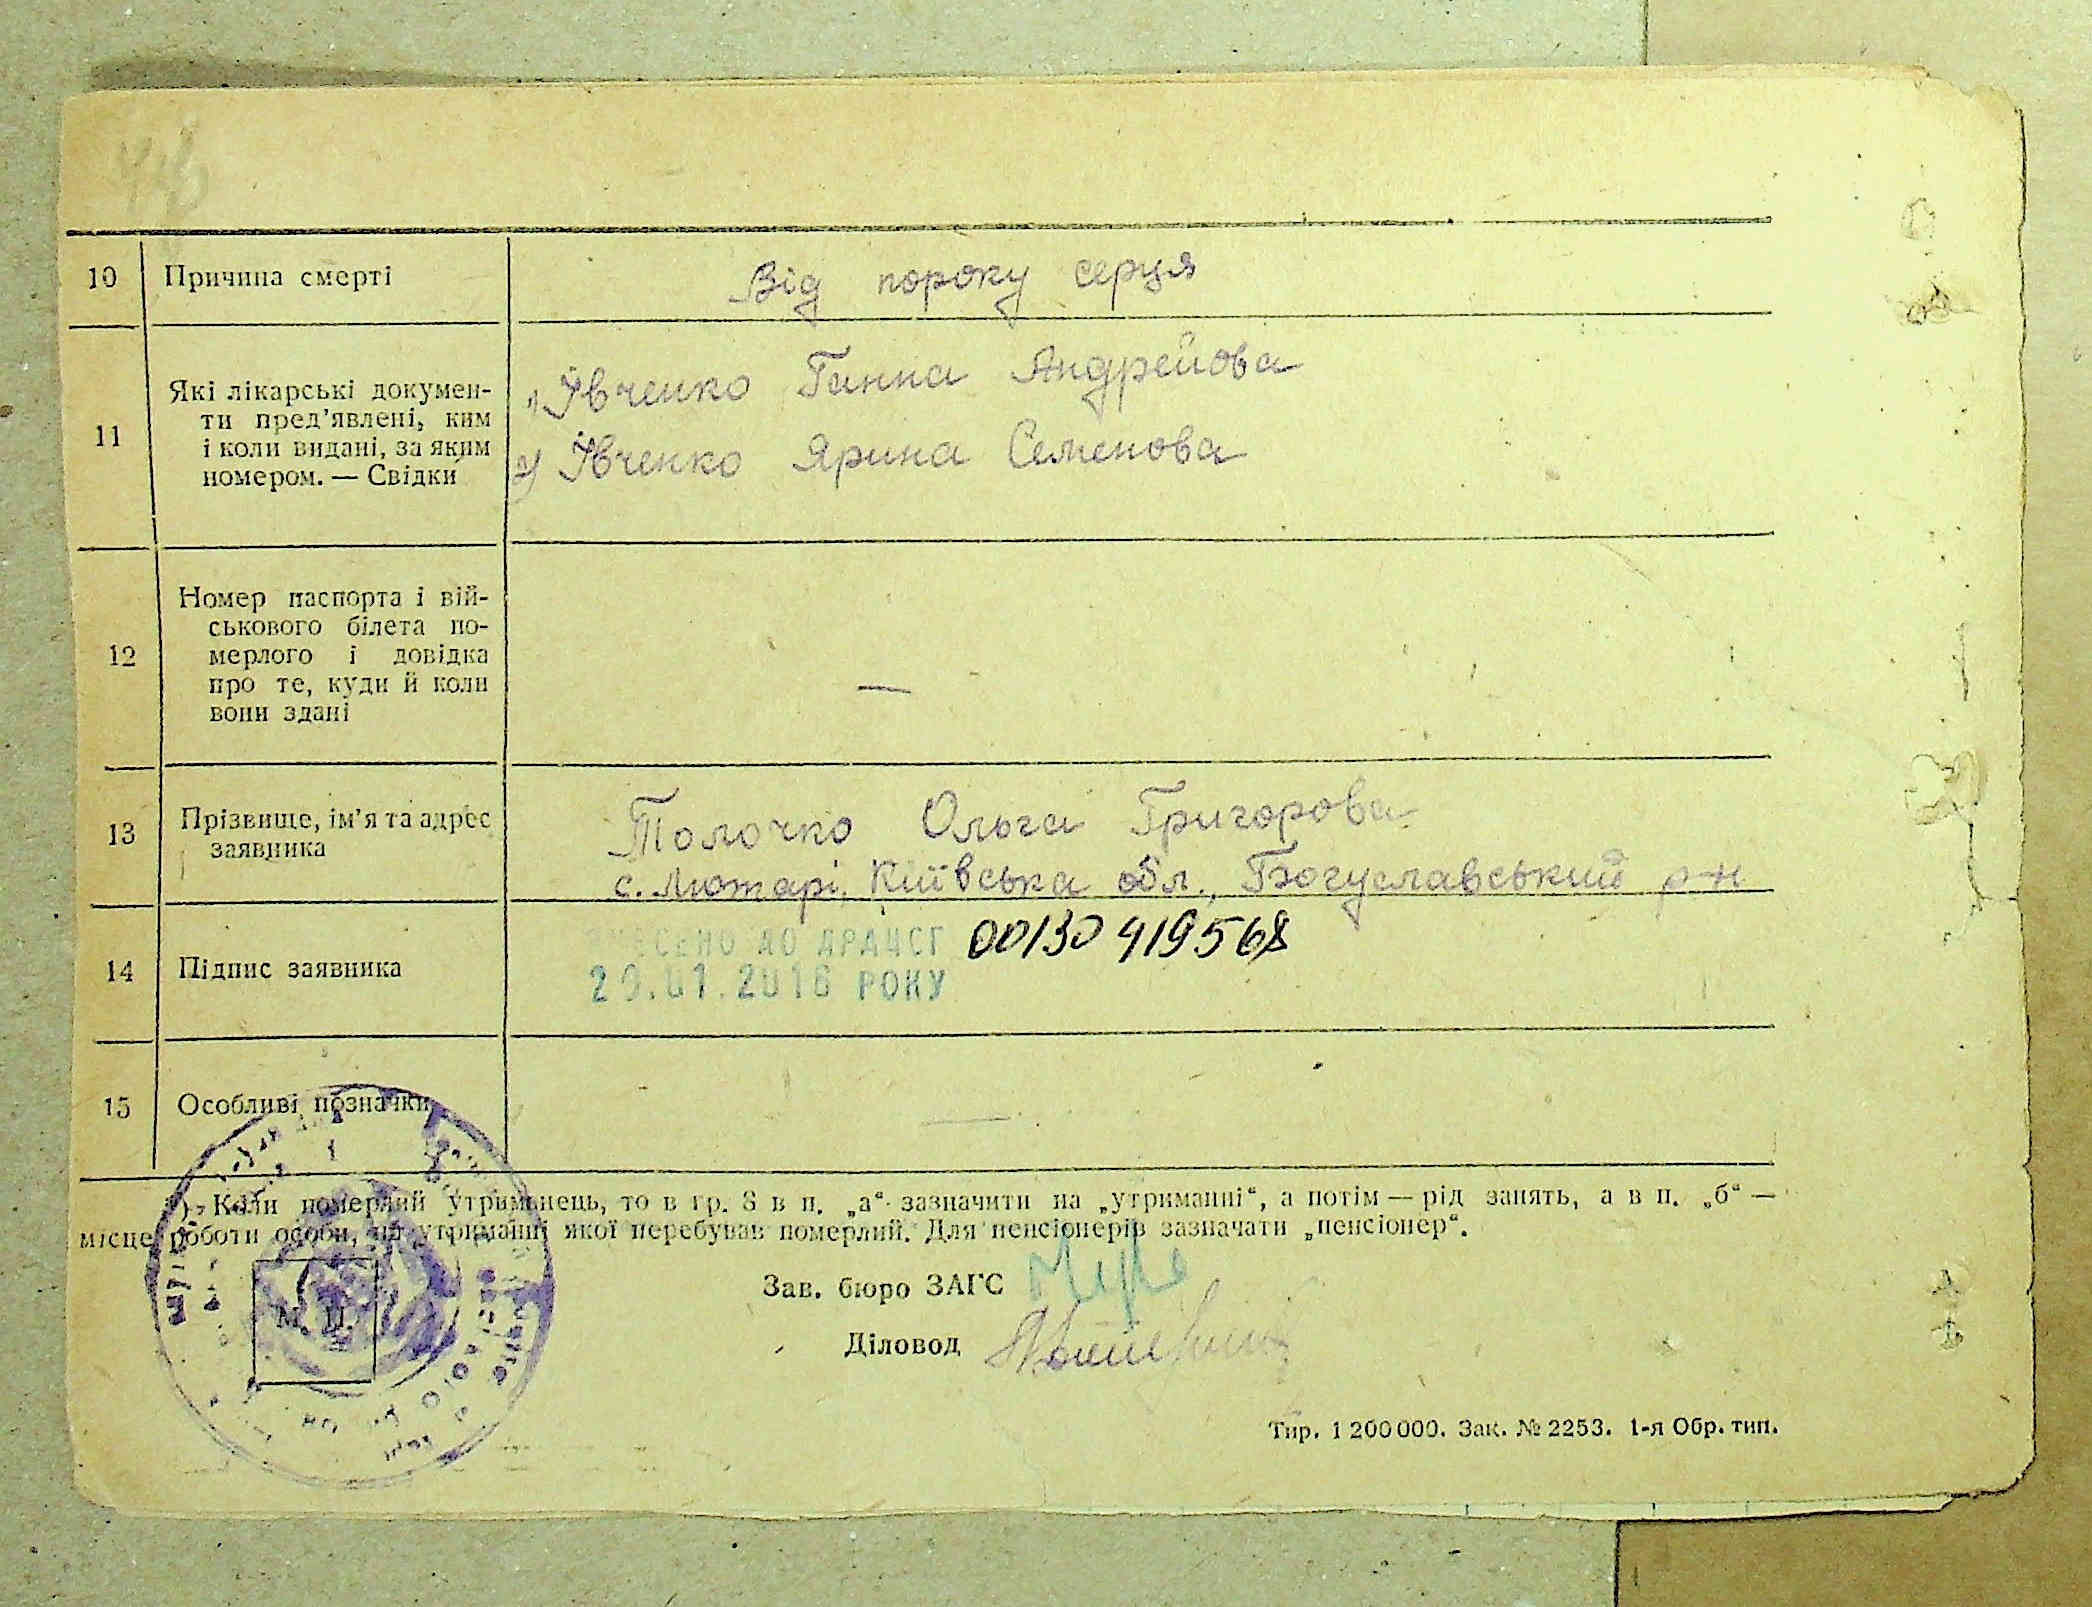 10 Причина смерті Від пороку серця
11 Які лікарські докумен-
ти пред’явлені, ким
і коли видані, за яким
номером. — Свідки
1) Івченко Ганна Андрейова
2) Івченко Ярина Семенова
12 Номер паспорта і вій-
ськового білета по-
мерлого і довідка
про те, куди й коли
вони здані
—
13 Прізвище, ім’я та адрес
заявника
Толочко Ольга Григорова
с. Лютарі, Київська обл., Богуславський р-н
14 Підпис заявника
ВНЕСЕНО ДО ДРАЦСГ 00130419568
20.01.2016 РОКУ
15 Особливі позначки
—
¹) Коли померлий утриманець, то в гр. 8 в п. „а“ зазначити на „утриманні“, а потім — рід занять, а в п. „б“ —
місце роботи особи, на утриманні якої перебував померлий. Для пенсіонерів зазначати „пенсіонер“.
Зав. бюро ЗАГС
М. П.
Діловод
Тир. 1 200 000. Зак. № 2253. 1-я Обр. тип.